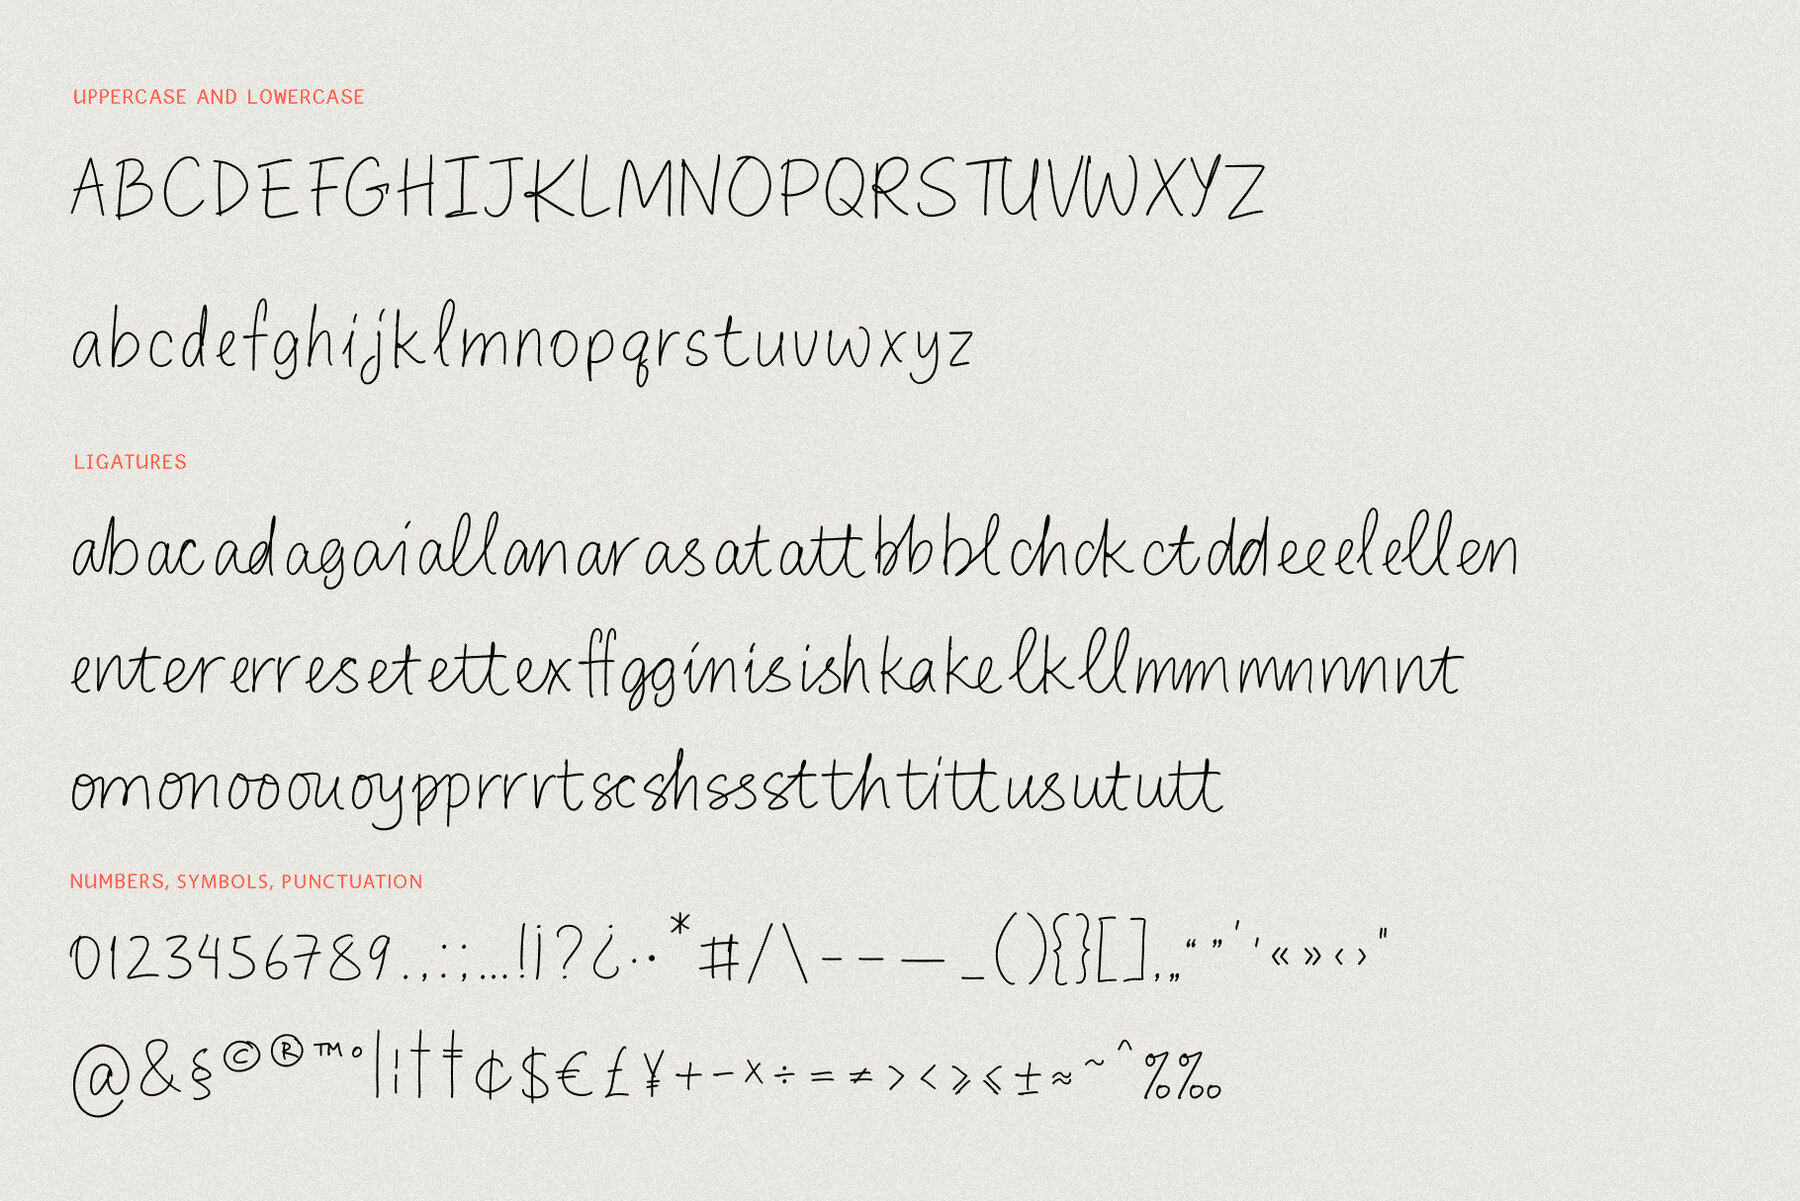 UPPERCASE AND LOWERCASE
ABCDEFGHIJKLMNOPQRSTUVWXYZ
abcdefghijklmnopqrstuvwxyz
LIGATURES
abacadagaiallanarasatattbbblchckctddeeelellen
entererresetettexffggínísishkakelkllmmmnnnnt
omonooouoypprrrtscshssstthtittusututt
NUMBERS, SYMBOLS, PUNCTUATION
0123456789.,:;…!¡?¿·•*#/\-–—_(){}[]‚„“”‘’«»‹›"
@&§©®™°|¦†‡¢$€£¥+−×÷=≠><≥≤±≈~^%‰